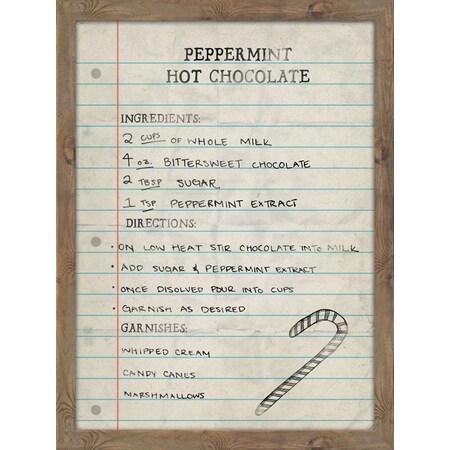 PEPPERMINT
HOT CHOCOLATE
INGREDIENTS:
2 CUPS OF WHOLE MILK
4 OZ. BITTERSWEET CHOCOLATE
2 TBSP SUGAR
1 TSP PEPPERMINT EXTRACT
DIRECTIONS:
• ON LOW HEAT STIR CHOCOLATE INTO MILK
• ADD SUGAR & PEPPERMINT EXTRACT
• ONCE DISOLVED POUR INTO CUPS
• GARNISH AS DESIRED
GARNISHES:
WHIPPED CREAM
CANDY CANES
MARSHMALLOWS